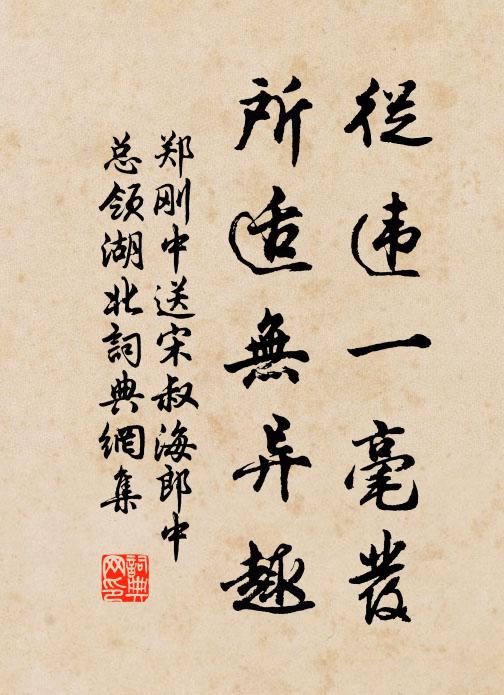 從违一毫發
所适無异趣
郑刚中送宋叔海郎中
总领湖北詞典網集
詞典
网印